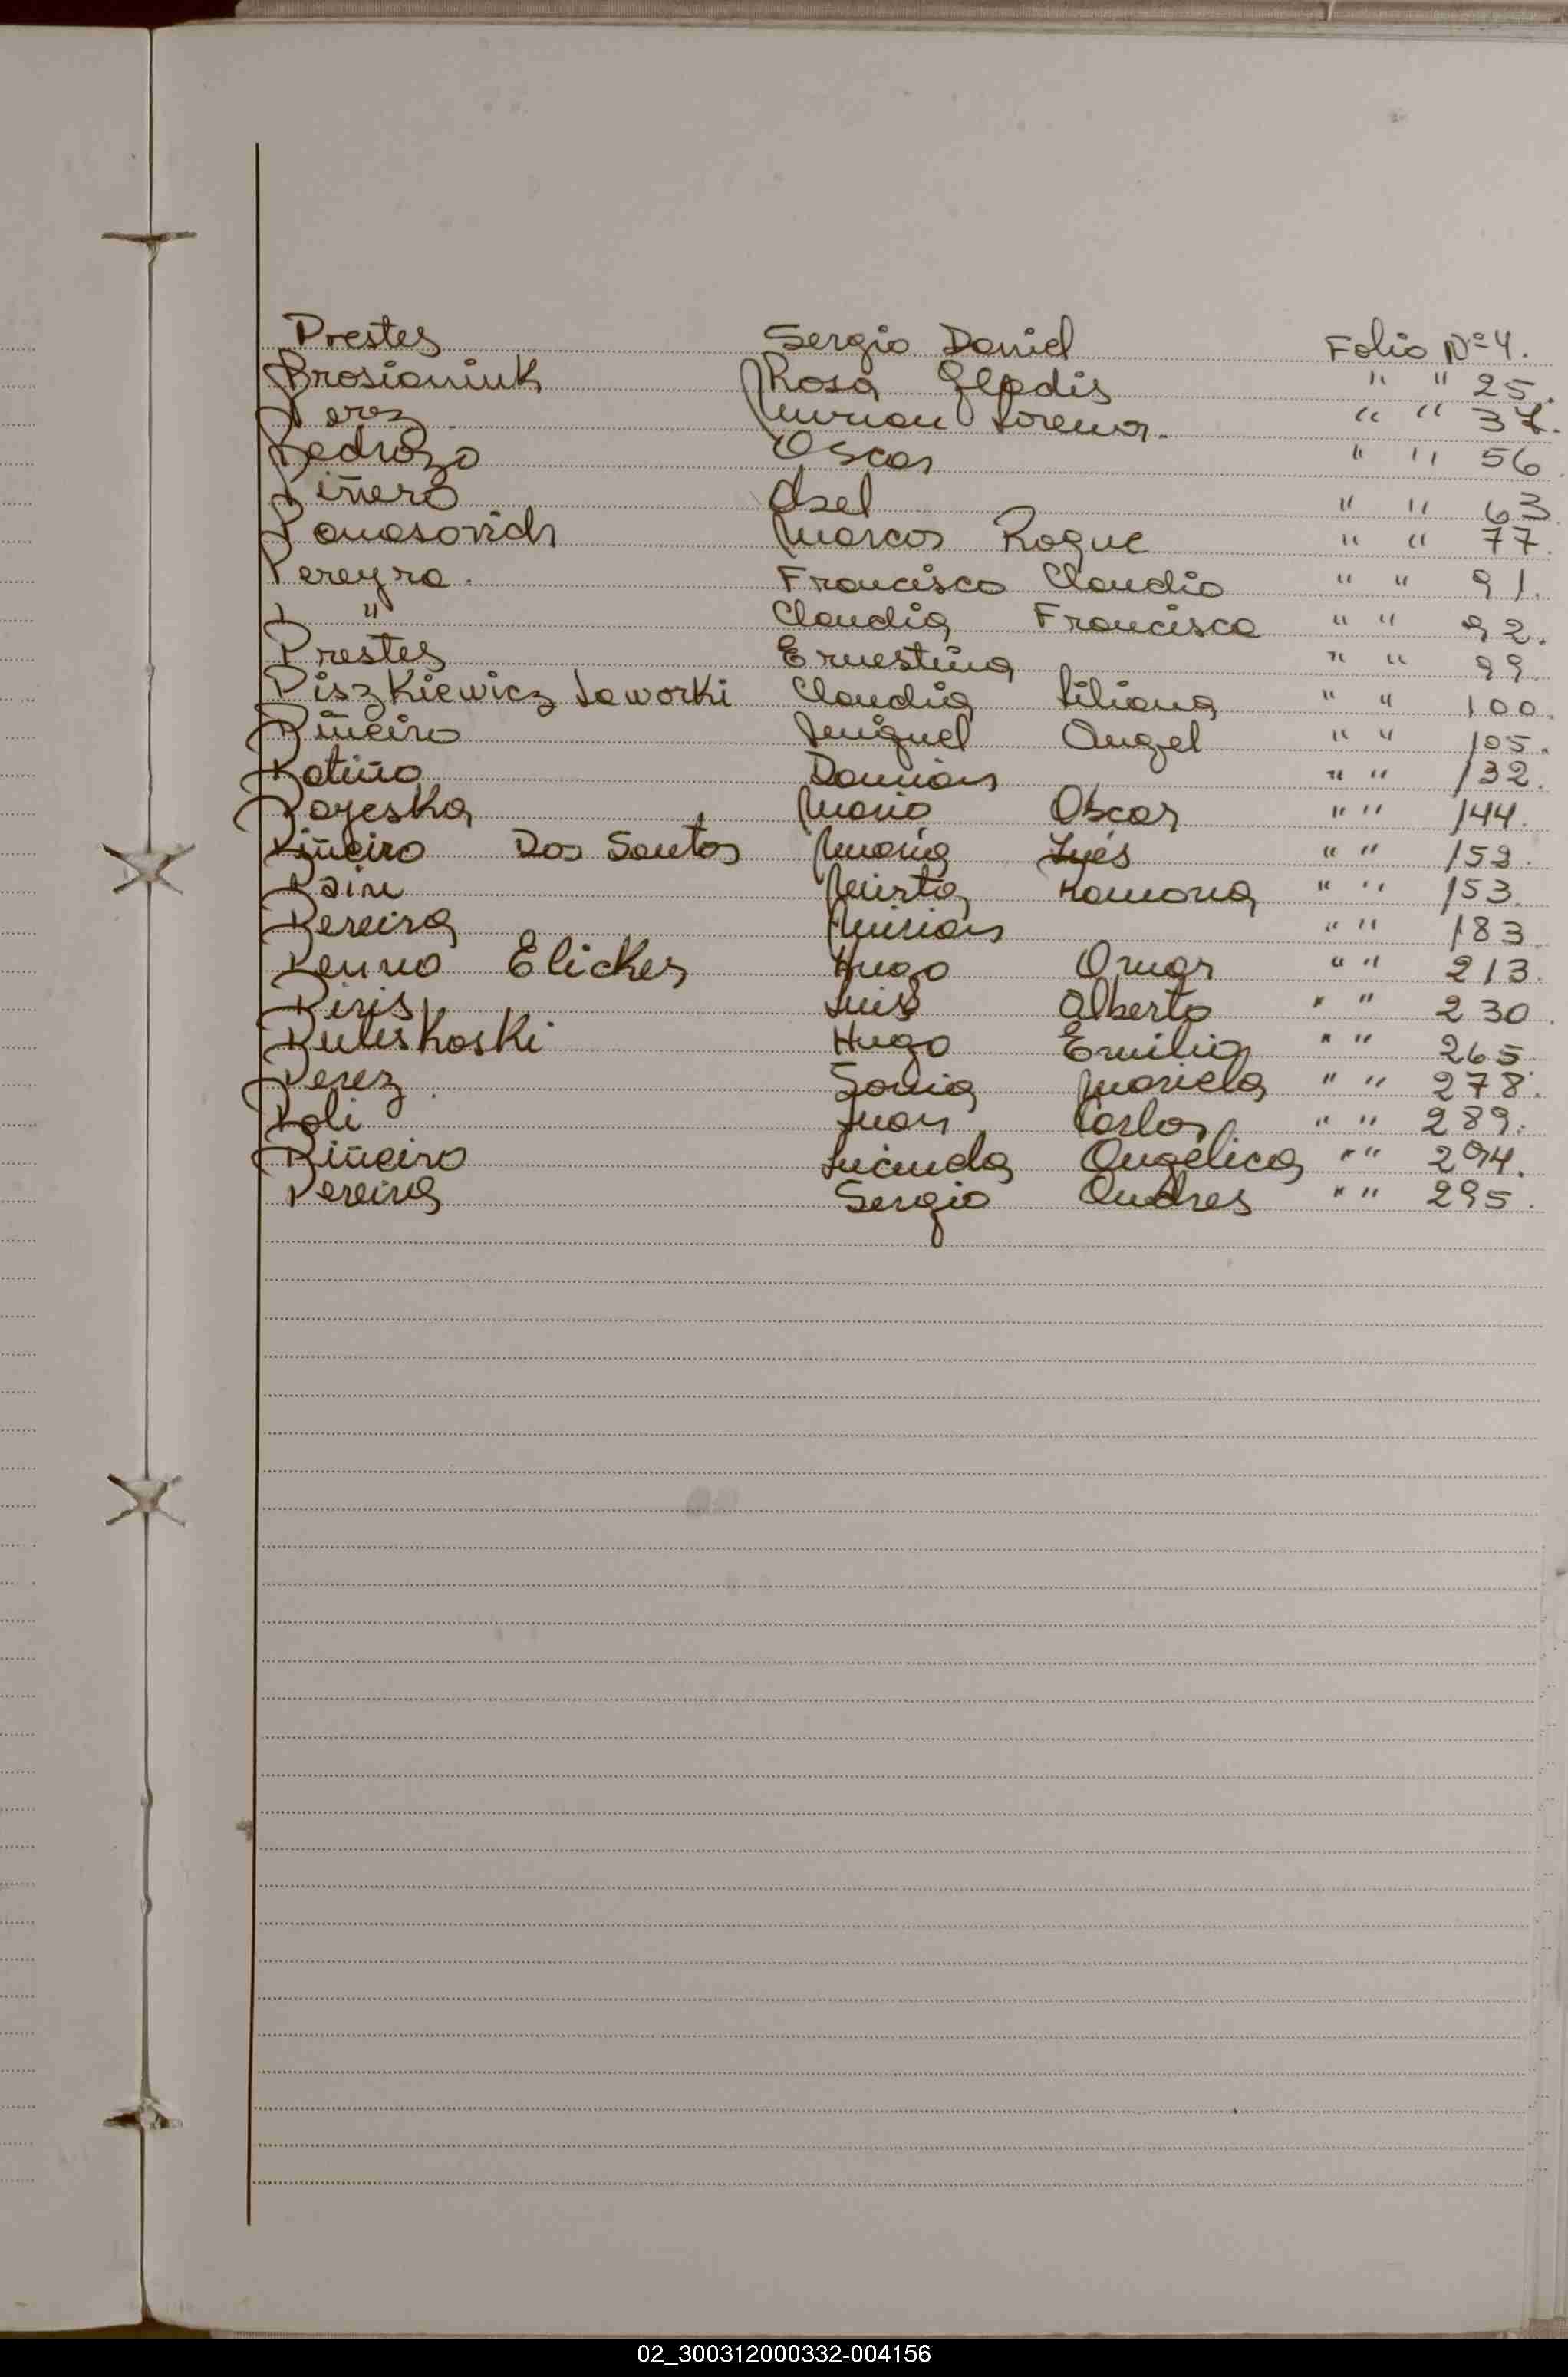 Prestes Sergio Daniel Folio Nº 4.
Prosianiuk Rosa Gladis " " 25.
Perez Mirian Lorena. " " 37.
Pedrozo Oscar " " 56
Piñero Axel " " 63
Panasovich Marcos Roque " " 77.
Pereyra. Francisco Claudio " " 91.
" Claudia Francisca " " 92.
Prestes Ernestina " " 99.
Piszkiewicz Jaworki Claudia Liliana " " 100.
Piñeiro Miguel Angel " " 105.
Patiño Damian " " 132.
Payeska Mario Oscar " " 144.
Piñeiro Dos Santos María Inés " " 152.
Pain Mirta Ramona " " 153.
Pereira Mirian " " 183.
Penno Elicker Hugo Omar " " 213.
Piris Luis Alberto " " 230.
Hugo Emilio " " 265
Perez. Sonia Mariela " " 278.
Poli Juan Carlos " " 289.
Piñeiro Lucinda Angélica " " 294.
Pereira Sergio Andres " " 295.
02_300312000332-004156